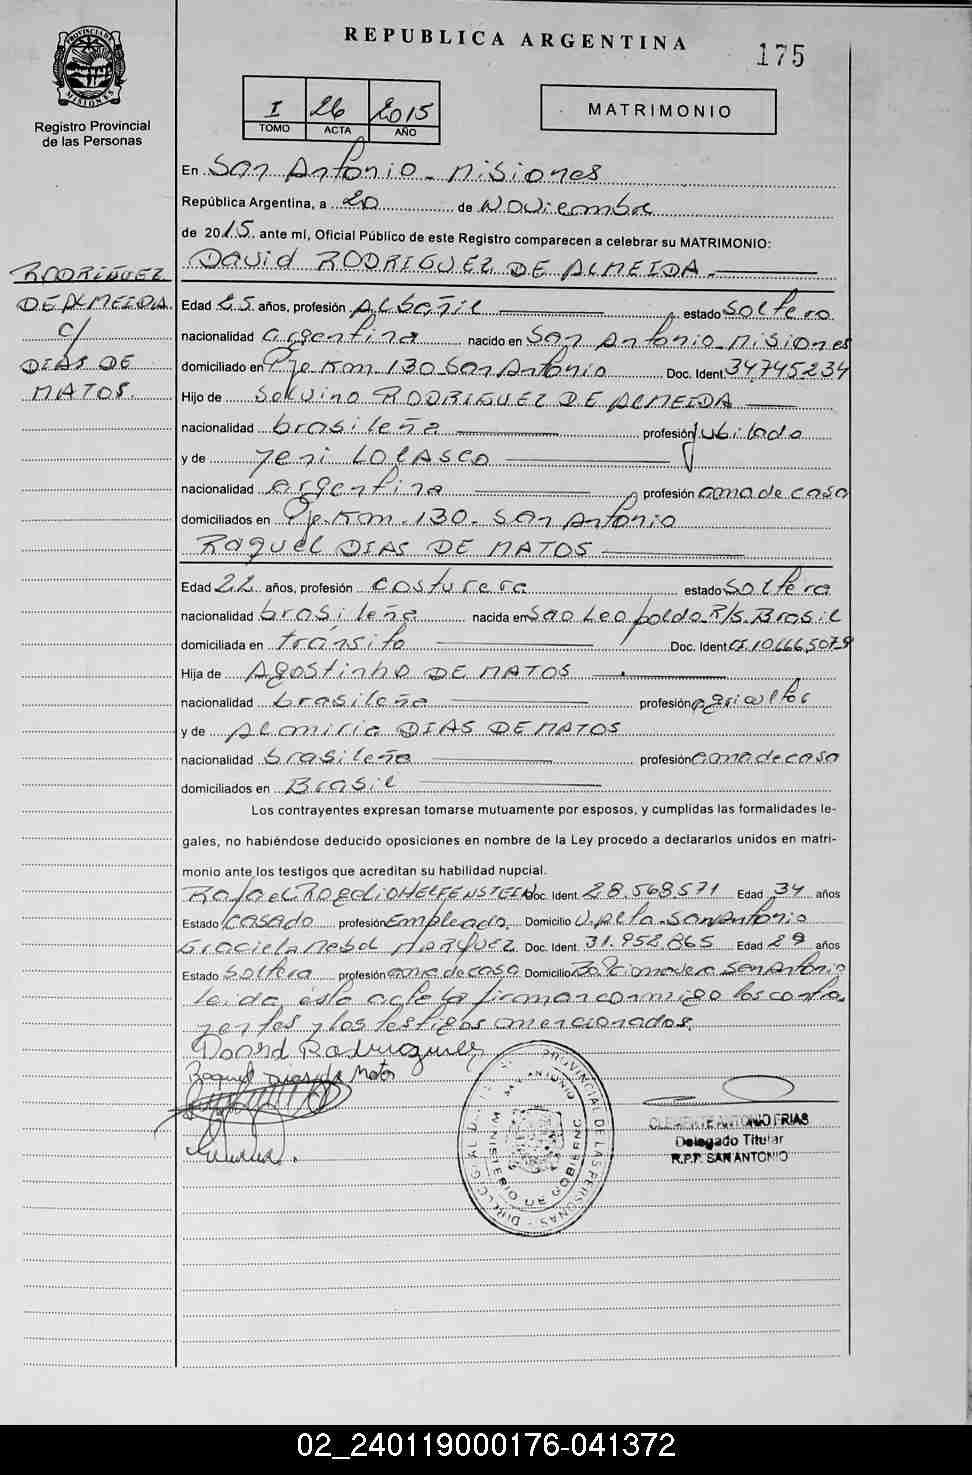 REPUBLICA ARGENTINA
175
PROVINCIA DE MISIONES
Registro Provincial
de las Personas
I 26 2015
TOMO ACTA AÑO
MATRIMONIO
En San Antonio - Misiones
República Argentina, a 20 de Noviembre
de 2015. ante mí, Oficial Público de este Registro comparecen a celebrar su MATRIMONIO:
David RODRIGUEZ DE ALMEIDA.
RODRIGUEZ
DE ALMEIDA
c/
DIAS DE
MATOS.
Edad 25 años, profesión Albañil estado Soltero
nacionalidad argentina nacido en San Antonio-Misiones
domiciliado en Pje. Km. 130 San Antonio Doc. Ident. 34.745.234
Hijo de Salvino RODRIGUEZ DE ALMEIDA
nacionalidad brasileña profesión Jubilado
y de Yeni LOLASCO
nacionalidad argentina profesión ama de casa
domiciliados en Pje. Km. 130. San Antonio
Raquel DIAS DE MATOS
Edad 22 años, profesión costurera estado Soltera
nacionalidad brasileña nacida en Sao Leopoldo R/S. Brasil
domiciliada en transito Doc. Ident. CI.106665079
Hija de Agostinho DE MATOS
nacionalidad brasileña profesión agricultor
y de Almiria DIAS DE MATOS
nacionalidad brasileña profesión ama de casa
domiciliados en Brasil
Los contrayentes expresan tomarse mutuamente por esposos, y cumplidas las formalidades le-
gales, no habiéndose deducido oposiciones en nombre de la Ley procedo a declararlos unidos en matri-
monio ante los testigos que acreditan su habilidad nupcial.
Rafael Rogelio HELFENSTEIN Doc. Ident. 28.568.571 Edad 34 años
Estado Casado profesión Empleado. Domicilio San Antonio
Graciela MARQUEZ Doc. Ident. 31.952.865 Edad 29 años
Estado Soltera profesión ama de casa Domicilio San Antonio
leida esta acta la firman conmigo los contra-
yentes y los testigos mencionados.
David Rodriguez
Raquel Dias de Matos
DIRECCION PROVINCIAL DE LAS PERSONAS
SAN ANTONIO
MINISTERIO DE GOBIERNO
CLEMENTE ANTONIO FRIAS
Delegado Titular
R.P.P. SAN ANTONIO
02_240119000176-041372